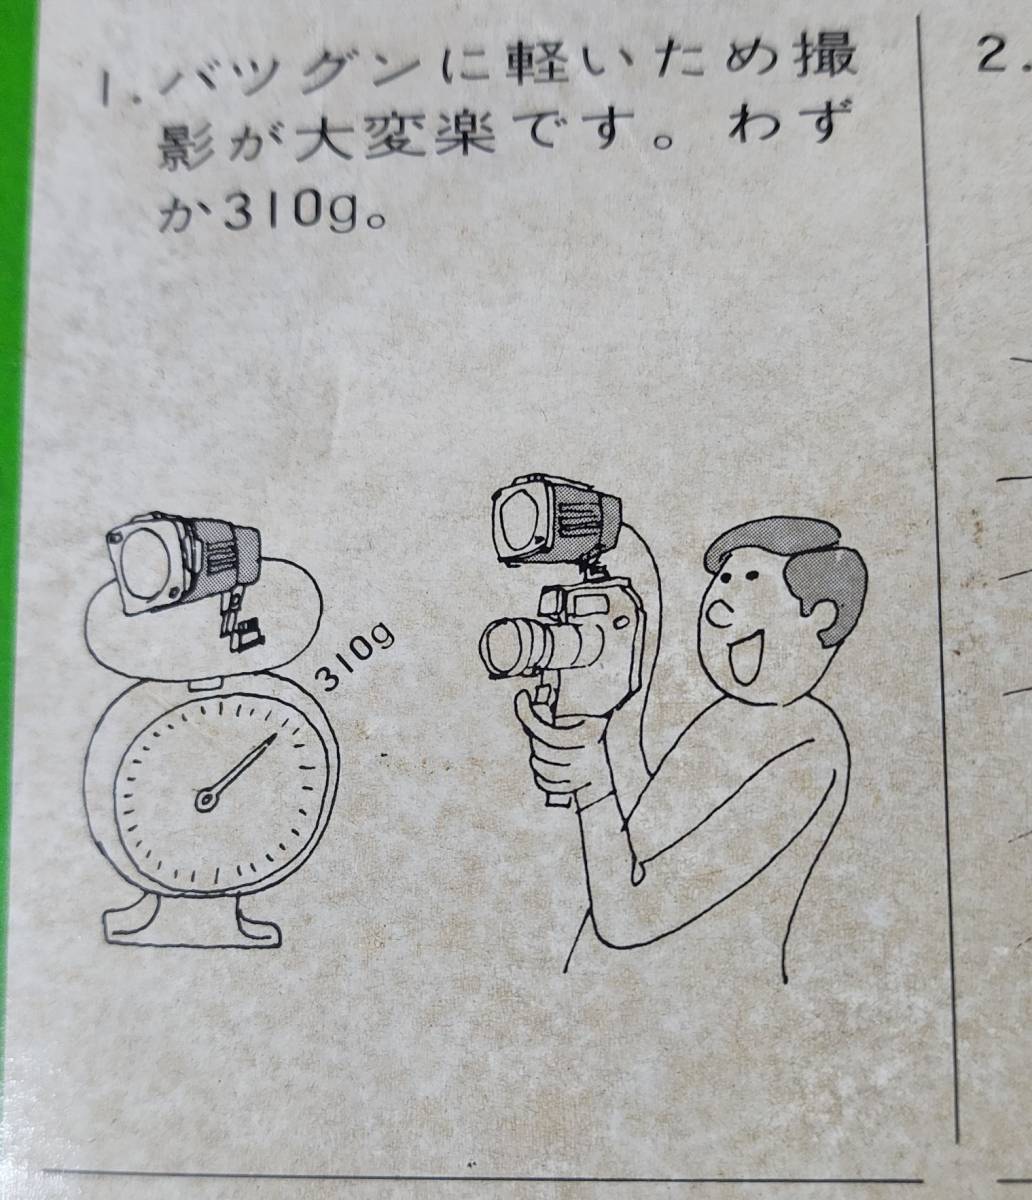 1.バツグンに軽いため撮
影が大変楽です。わず
か310g。
2.
310g